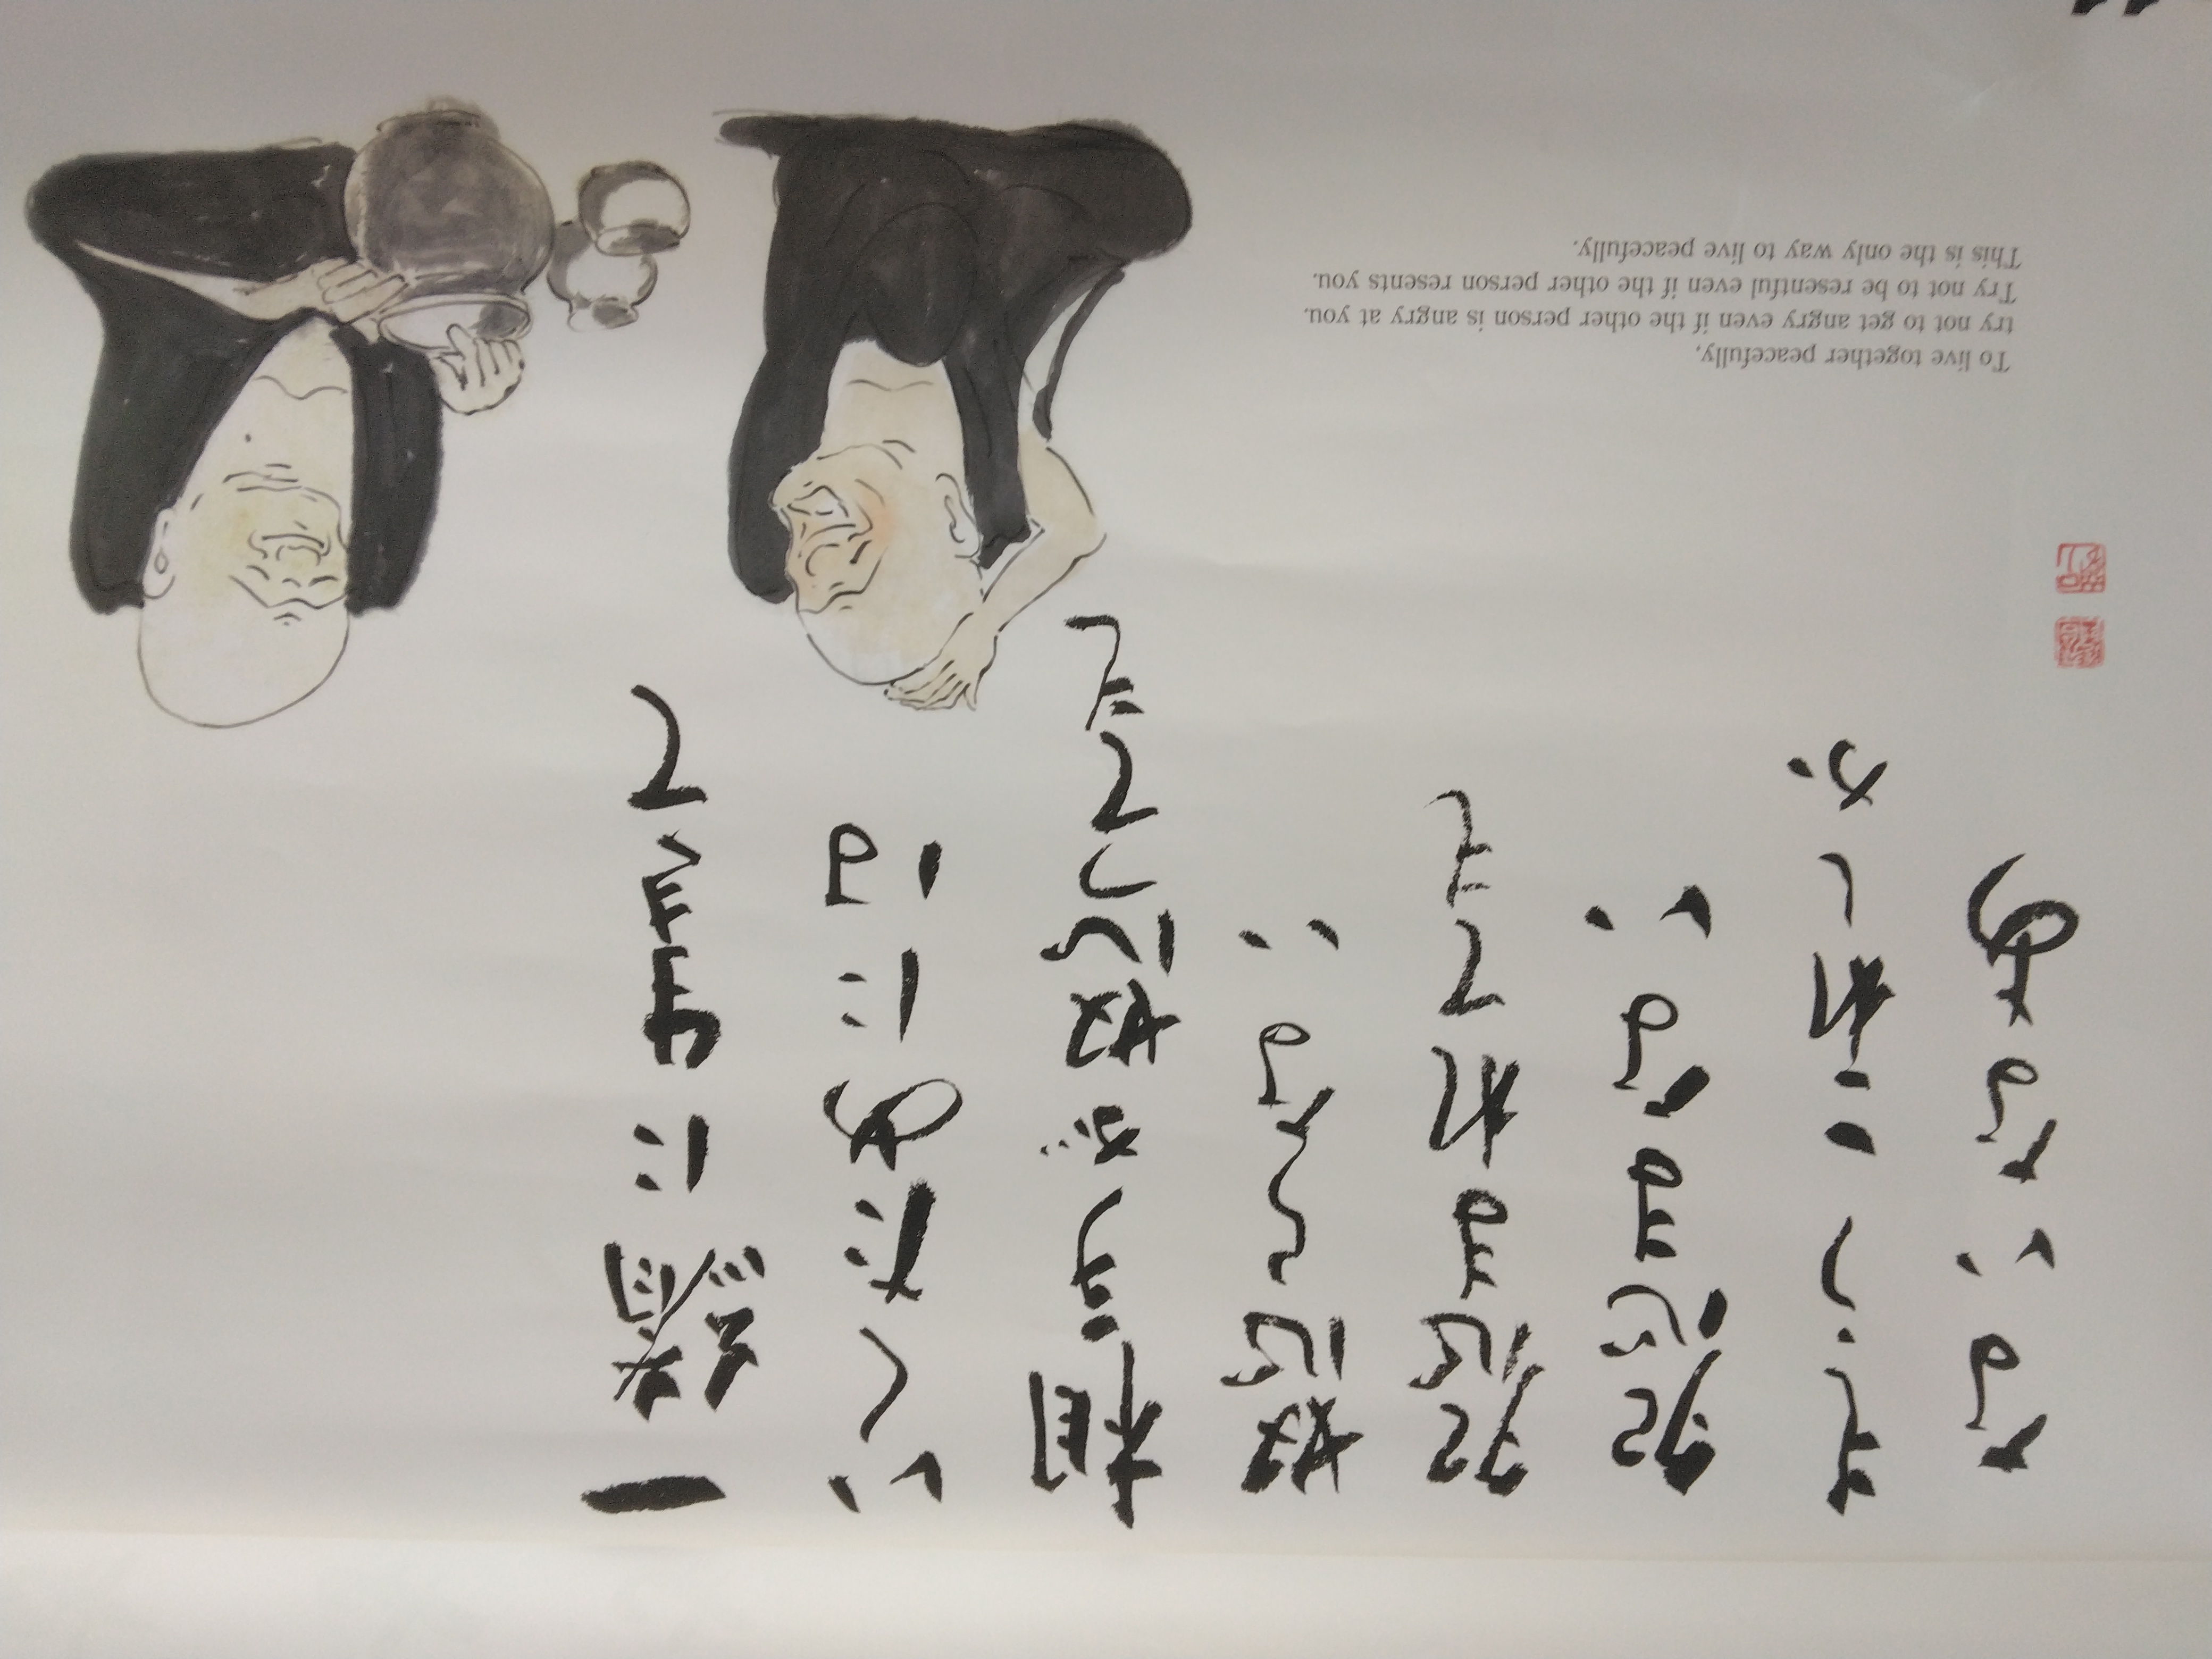 一緒に生きて
いくために は
相手が怒っても
怒らない
怨まれても
怨まない
きっとこれしか
ないなあ
To live together peacefully,
try not to get angry even if the other person is angry at you.
Try not to be resentful even if the other person resents you.
This is the only way to live peacefully.